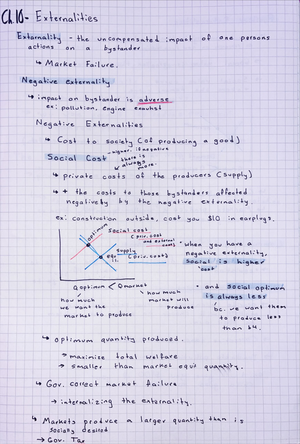 Ch.10- Externalities
Externality - the uncompensated impact of one persons
actions on a bystander.
↳ Market Failure.
Negative externality
↳ impact on bystander is adverse
ex: pollution, engine exauhst
Negative Externalities
↳ Cost to society (of producing a good)
Social Cost
- higher if negative
there is always more.
↳ private costs of the producers (supply)
↳ + the costs to those bystanders affected
negatively by the negative externality.
ex: construction outside, cost you $10 in earplugs.
optimum
social cost
(priv. cost
and external
costs)
supply
(priv. costs)
equ
• when you have a
negative externality,
social is higher
cost
Q optimum < Qmarket
↳ how much
we want the
market to produce
↳ how much
market will
produce
• and social optimum
is always less
bc. we want them
to produce less
than
↳ optimum quantity produced.
↳ maximize total welfare
↳ smaller than market equ quantity.
↳ Gov. correct market failure
↳ internalizing the externality.
↳ Markets produce a larger quantity than is
socially desired
↳ Gov. Tax